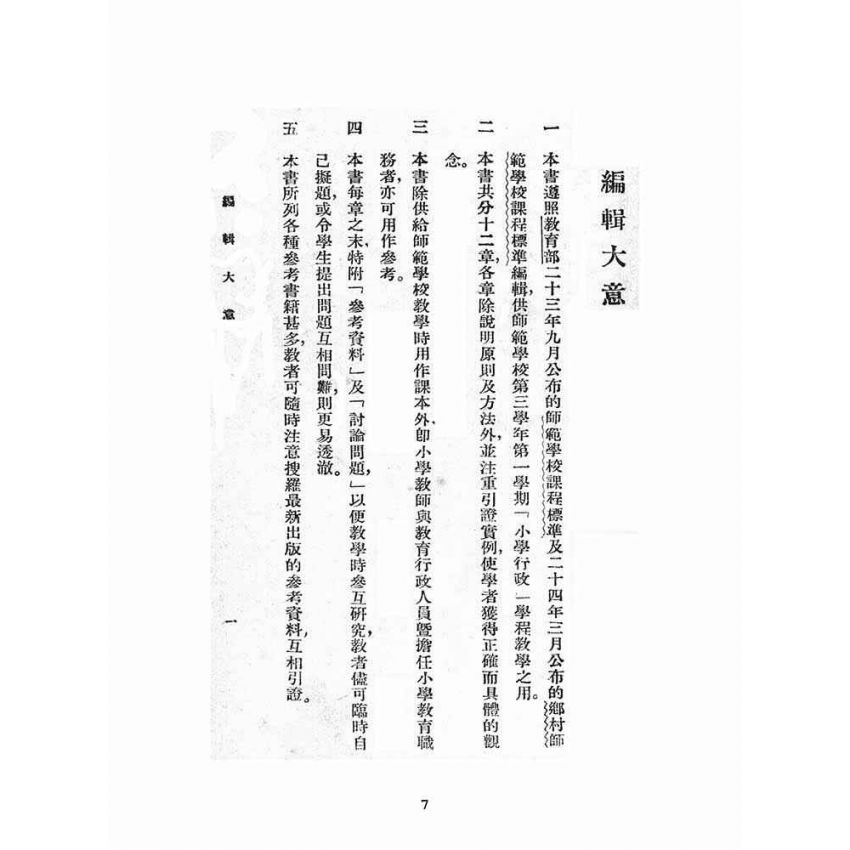 編輯大意
一　本書遵照教育部二十三年九月公布的師範學校課程標準及二十四年三月公布的鄉村師
範學校課程標準編輯，供師範學校第三學年第一學期「小學行政」學程教學之用。
二　本書共分十二章，各章除說明原則及方法外，並注重引證實例，使學者獲得正確而具體的觀
念。
三　本書除供給師範學校教學時用作課本外，卽小學教師與教育行政人員暨擔任小學教育職
務者，亦可用作參考。
四　本書每章之末，特附「參考資料」及「討論問題，」以便教學時參互研究，教者儘可臨時自
己擬題，或令學生提出問題互相問難，則更易透澈。
五　本書所列各種參考書籍甚多，教者可隨時注意搜羅最新出版的參考資料，互相引證。
編輯大意
一
7